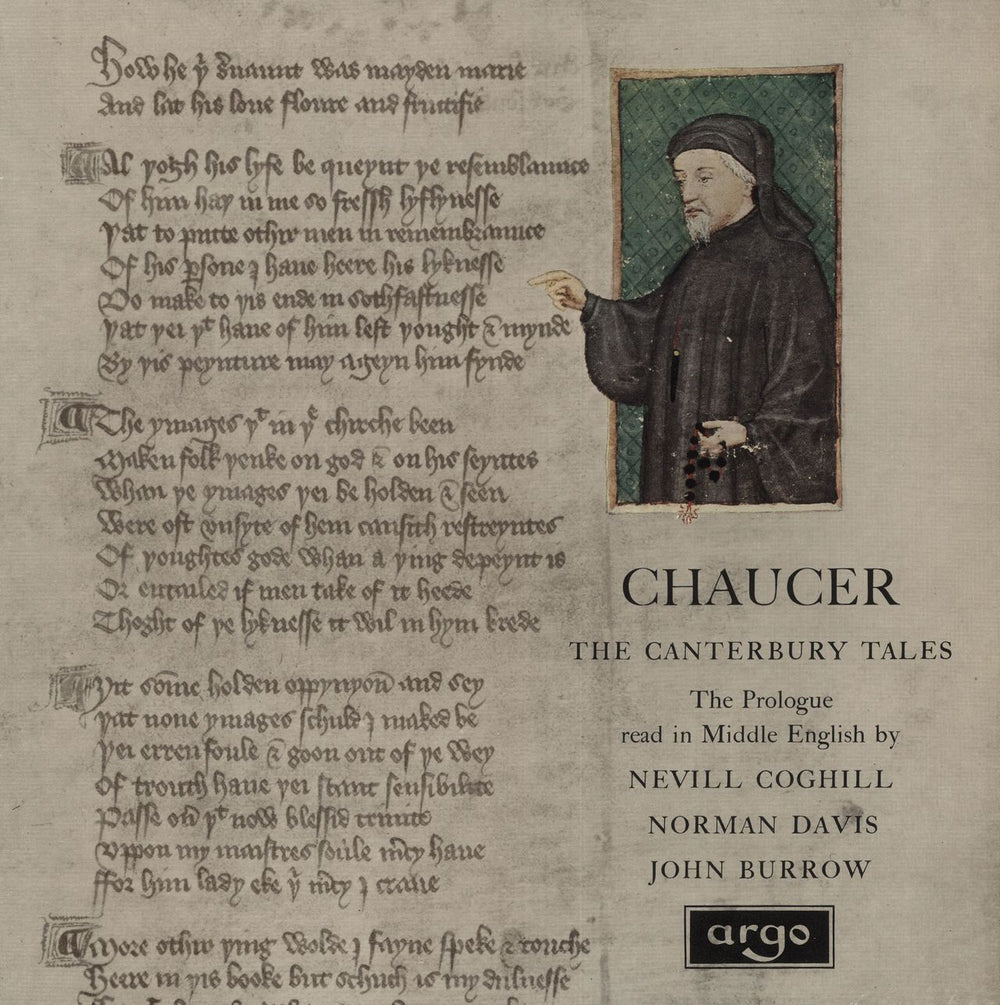 How he yͥ s̉uaunt was mayden marie
And lat his loue floure and fructifie
Al þogh his lyfe be queynt þe resemblaunce
Of him haþ in me so fressh lyflynesse
Þat to putte othir men in remembraunce
Of his ꝑsone I haue heere his lyknesse
Do make to þis ende in sothfastnesse
Þat þei þͭ haue of him left þought & mynde
By þis peynture may ageyn him fynde
The ymages þͭ in þͤ chirche been
Maken folk þenke on god & on his seyntes
Whan þe ymages þei be holden & seen
Were oft vnsyte of hem causith restreyntes
Of þoughtes gode whan a þing depeynt is
Or entailed if men take of it heede
Thoght of þe lyknesse it wil in hym brede
Ȝit som̄e holden oppynyoū and sey
Þat none ymages schuld I maked be
Þei erren foule & goon out of þe wey
Of trouth haue þei scant sensibilite
Passe oủ þͭ now blessid trinite
Vppon my maistres soule m̉cy haue
ffor him lady eke þͥ m̉cy I craue
More othir þing wolde I fayne speke & touche
Heere in þis booke but schuch is my dulnesse
CHAUCER
THE CANTERBURY TALES
The Prologue
read in Middle English by
NEVILL COGHILL
NORMAN DAVIS
JOHN BURROW
argo